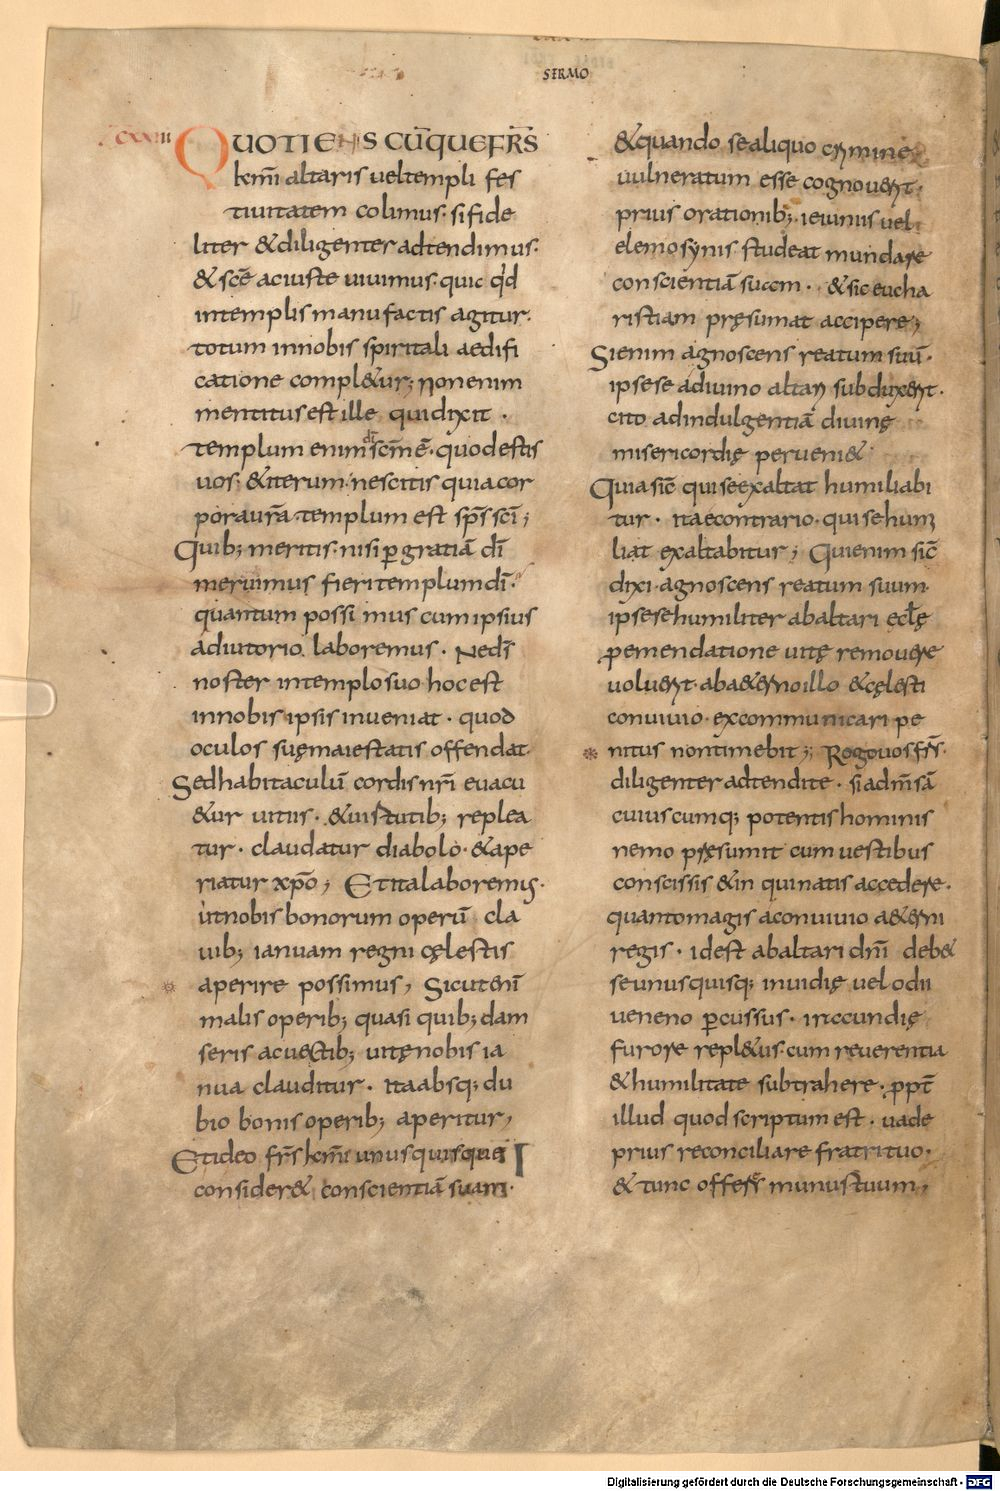 SERMO
CXXVII
QUOTIENS CŪQUE FR̄S
km̄i altaris uel templi fes
tiuitatem colimus· si fide
liter & diligenter adtendimus·
& sc̄e ac iuste uiuimus· quic q͛d
in templis manufactis agitur·
totum in nobis spiritali aedifi
catione compl&ur; non enim
mentitus est ille qui dixit ·
templum enim dī sc̄m ē· quod estis
uos; & iterum· nescitis quia cor
pora ur̄a templum est sp̄s sc̄i;
Quib; meritis· nisi ꝑ gratiā dī
meruimus fieri templum dī·
quantum possimus cum ipsius
adiutorio laboremus· Ne d̄s
noster in templo suo hoc est
in nobis ipsis inueniat · quod
oculos suę maiestatis offendat
Sed habitaculū cordis nr̄i euacu
&ur uitiis· & uirtutib; replea
tur· claudatur diabolo· & ape
riatur xp̄o; Et ita laboremus·
ut nobis bonorum operū cla
uib; ianuam regni cęlestis
aperire possimus, Sicut enī
malis operib; quasi quib;dam
seris ac uectib; uitę nobis ia
nua clauditur· ita absq; du
bio bonis operib; aperitur,
Et ideo fr̄s km̄i unus quisque
consider& conscientiā suam·
& quando se aliquo crimine
uulneratum esse cognouerit·
prius orationib; ieiuniis uel
elemosynis studeat mundare
conscientiā suam· & sic eucha
ristiam pręsumat accipere;
Si enim agnoscens reatum suū·
ipse se a diuino altari subduxerit·
cito ad indulgentiā diuinę
misericordię perueni&
Quia sic̄ qui se exaltat humiliabi
tur· ita e contrario· qui se humi
liat exaltabitur; Qui enim sic̄
dixi· agnoscens reatum suum
ipse se humiliter ab altari ęcl̄ę
ꝑ emendatione uitę remouere
uoluerit· ab a&erno illo & cęlesti
conuiuio· excommunicari pe
nitus non timebit; Rogo uos fr̄s·
diligenter adtendite· si ad m̄sā
cuiuscumq; potentis hominis
nemo pręsumit cum uestibus
conscissis & inquinatis accedere·
quanto magis a conuiuio a&erni
regis· id est ab altari dn̄i deb&
se unusquisq; inuidię uel odii
ueneno ꝑcussus· iracundię
furore repl&us· cum reuerentia
& humilitate subtrahere· ꝓpt̄
illud quod scriptum est· uade
prius reconciliare fratri tuo·
& tunc offers munus tuum,
Digitalisierung gefördert durch die Deutsche Forschungsgemeinschaft - DFG